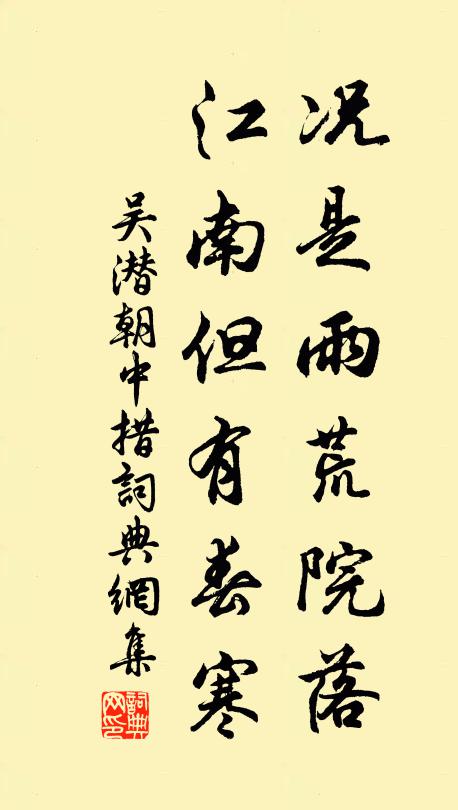 况是雨荒院落
江南但有春寒
吴潜朝中措詞典網集
詞典网印